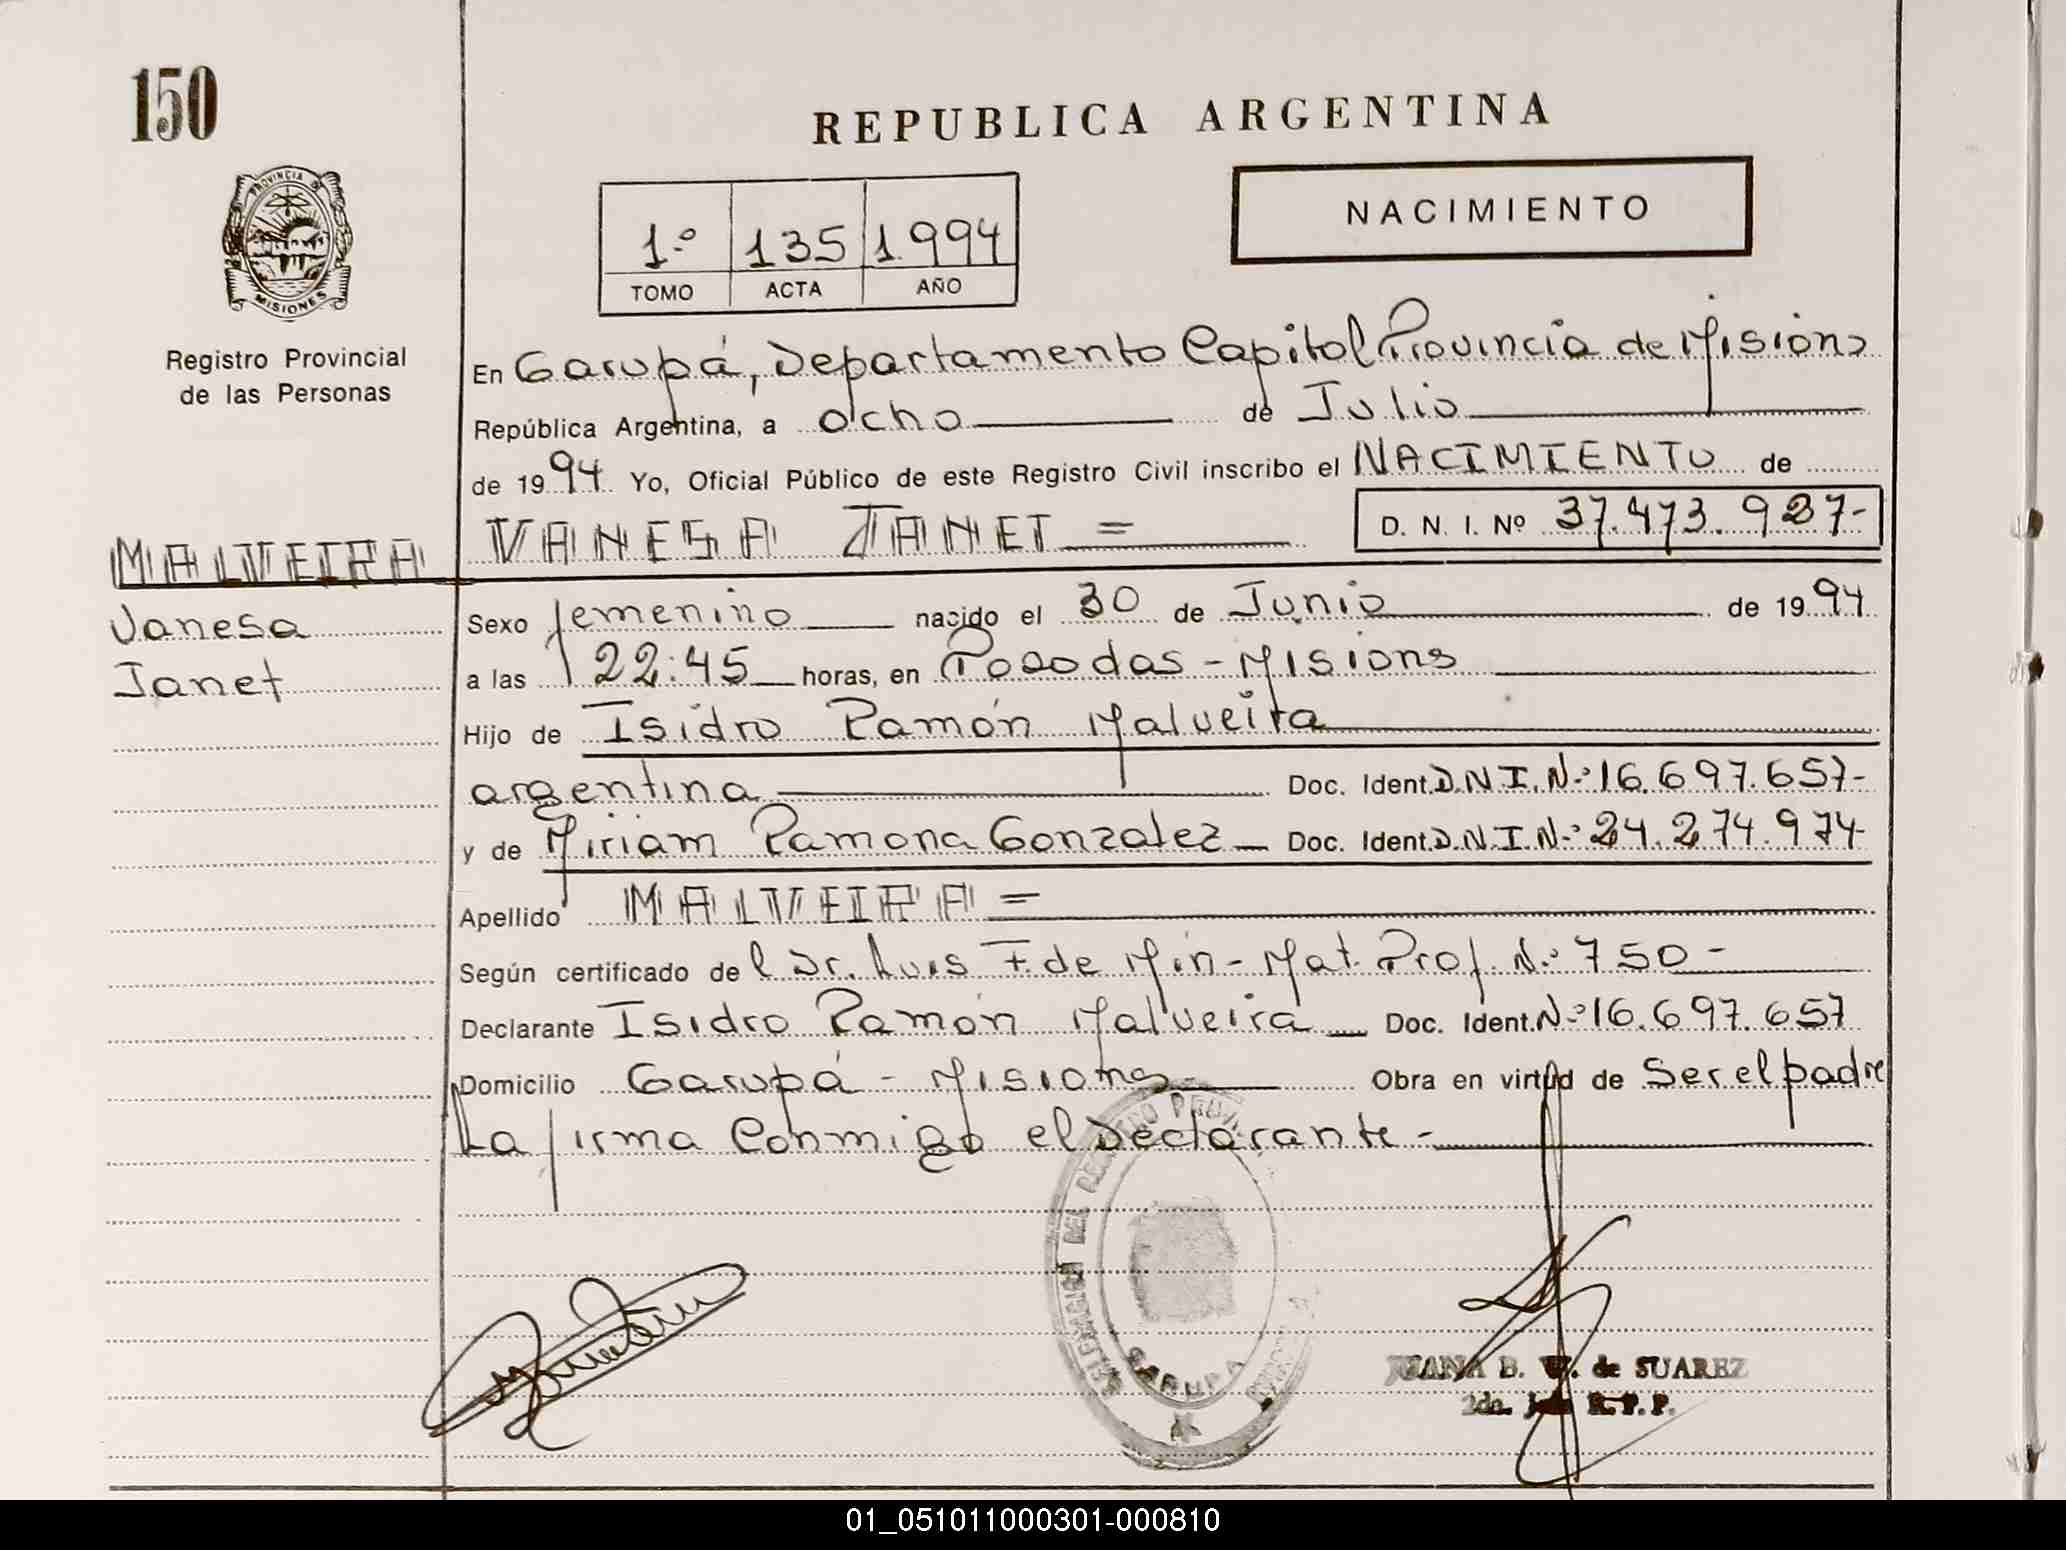 150
REPUBLICA ARGENTINA
PROVINCIA DE
MISIONES
Registro Provincial
de las Personas
1.º 135 1.994
TOMO ACTA AÑO
NACIMIENTO
En Garupá, Departamento Capital Provincia de Misions
República Argentina, a ocho de Julio
de 1994 Yo, Oficial Público de este Registro Civil inscribo el NACIMIENTO de
MALVEIRA
Vanesa
Janet
VANESA JANET = D. N. I. Nº 37.473.927-
Sexo femenino nacido el 30 de Junio de 1994
a las 22:45 horas, en Posadas - Misions
Hijo de Isidro Ramón Malveira
argentina Doc. Ident. D.N.I.N.º 16.697.657-
y de Miriam Ramona Gonzalez Doc. Ident. D.N.I.N.º 24.274.974-
Apellido MALVEIRA =
Según certificado del Dr. Luis F. de Min - Mat. Prof. N.º 750 -
Declarante Isidro Ramón Malveira Doc. Ident. N.º 16.697.657
Domicilio Garupá - Misions - Obra en virtud de Ser el padre
La firma Conmigo el Declarante -
GARUPA
JUANA B. W. de SUAREZ
2da. Jefe R.P.P.
01_051011000301-000810